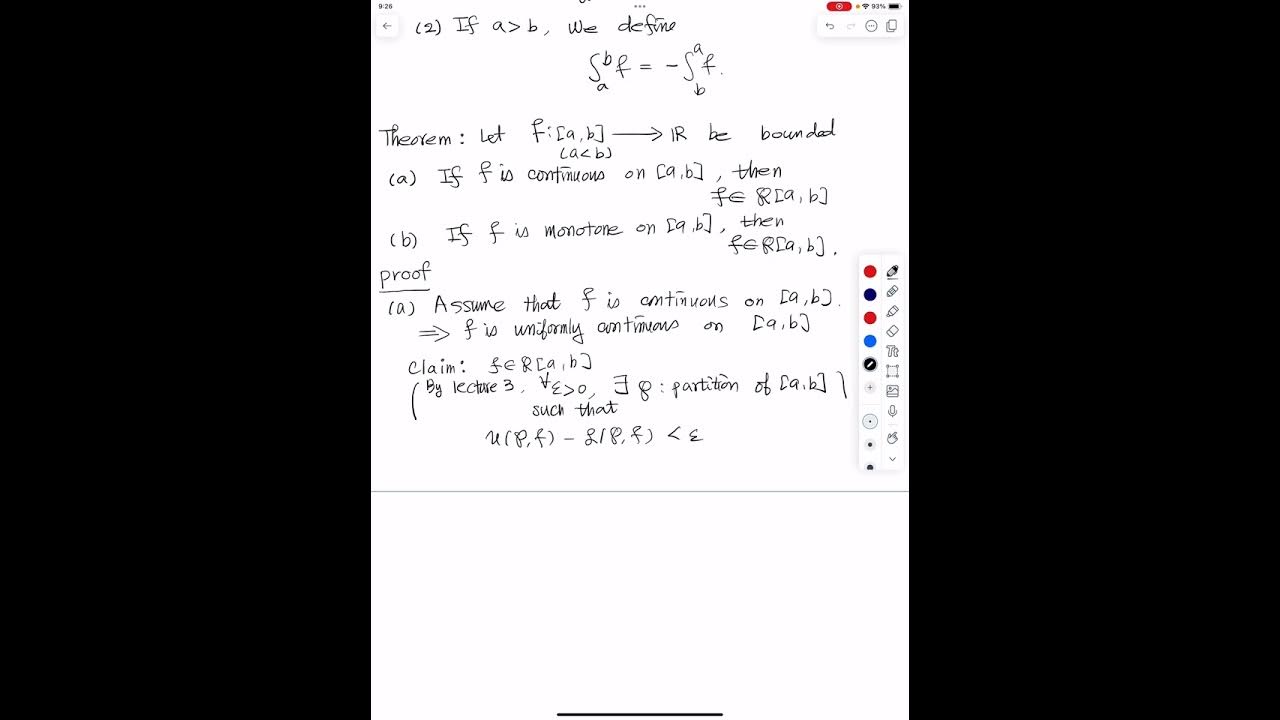 9:26
93%
(2) If a > b, we define
∫_a^b f = -∫_b^a f.
Theorem: Let f: [a,b] ⟶ ℝ be bounded
(a<b)
(a) If f is continuous on [a,b], then
f ∈ R[a,b]
(b) If f is monotone on [a,b], then
f ∈ R[a,b].
proof
(a) Assume that f is continuous on [a,b].
⟹ f is uniformly continuous on [a,b]
Claim: f ∈ R[a,b]
(By lecture 3, ∀ε>0, ∃ P: partition of [a,b])
such that
U(P,f) - L(P,f) < ε
Tt